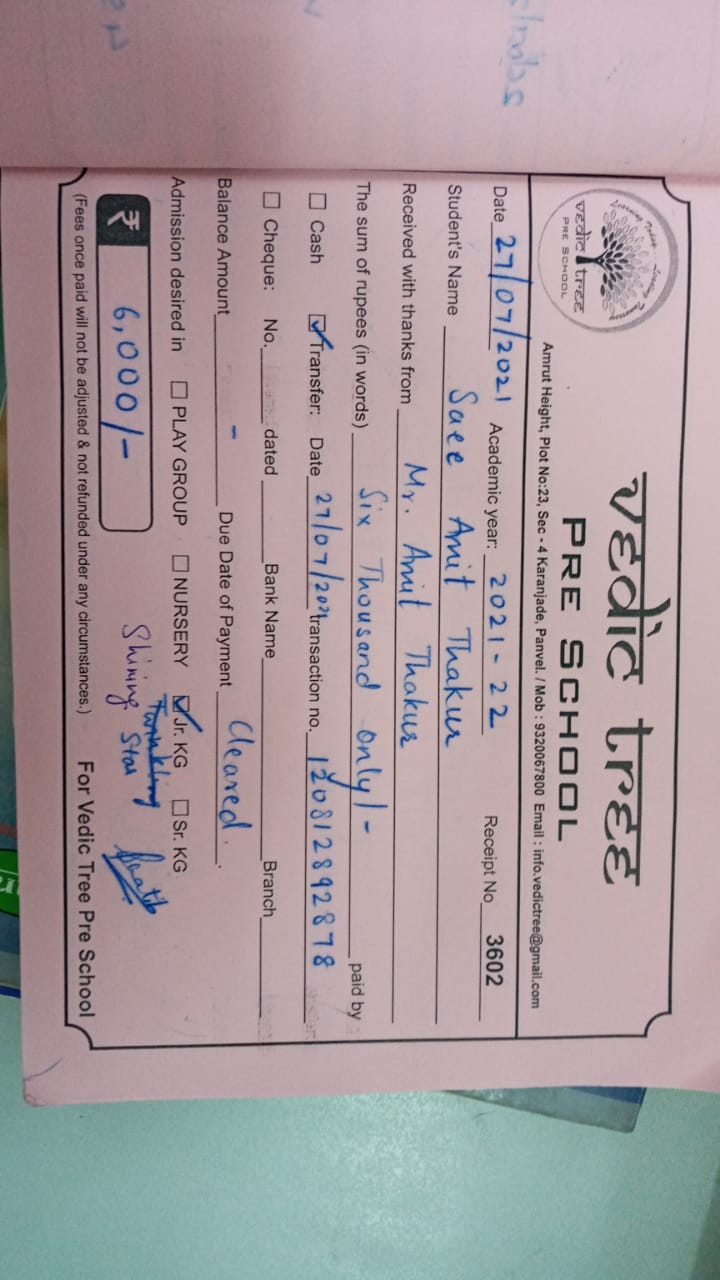 vedic tree
PRE SCHOOL
vedic tree
PRE SCHOOL
Amrut Height, Plot No:23, Sec - 4 Karanjade, Panvel. / Mob : 9320067800 Email : info.vedictree@gmail.com
Date 27/07/2021 Academic year: 2021-22 Receipt No 3602
Student's Name Saee Amit Thakur
Received with thanks from Mr. Amit Thakur
The sum of rupees (in words) Six Thousand only/- paid by
Cash Transfer: Date 27/07/2021 transaction no. 120812892878
Cheque: No. dated Bank Name Branch
Balance Amount - Due Date of Payment Cleared.
Admission desired in PLAY GROUP NURSERY Jr. KG Sr. KG
₹ 6,000/- Shining Star
(Fees once paid will not be adjusted & not refunded under any circumstances.) For Vedic Tree Pre School